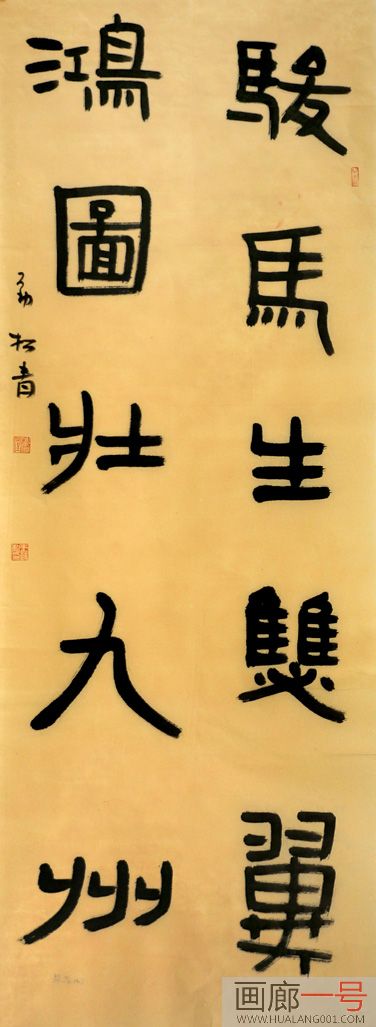 駿馬生雙翼
鴻圖壯九州
松青
画廊一号
WWW.HUALANG001.COM